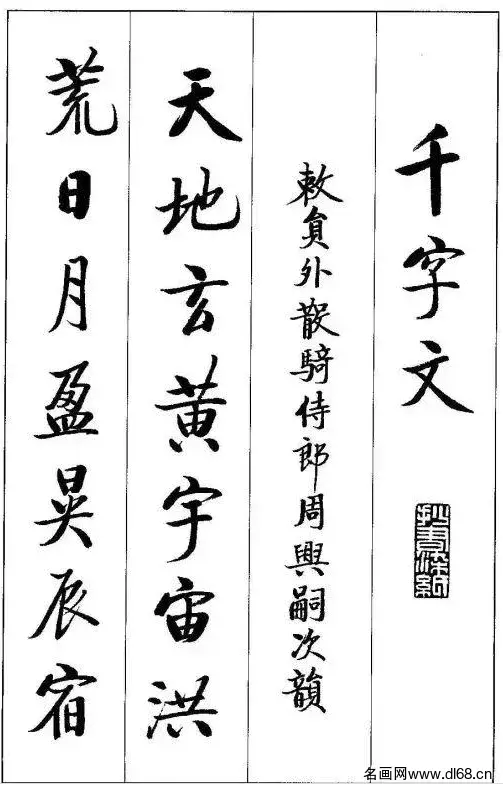 千字文
敕員外散騎侍郎周興嗣次韻
天地玄黄宇宙洪
荒日月盈昃辰宿
名画网www.dl68.cn